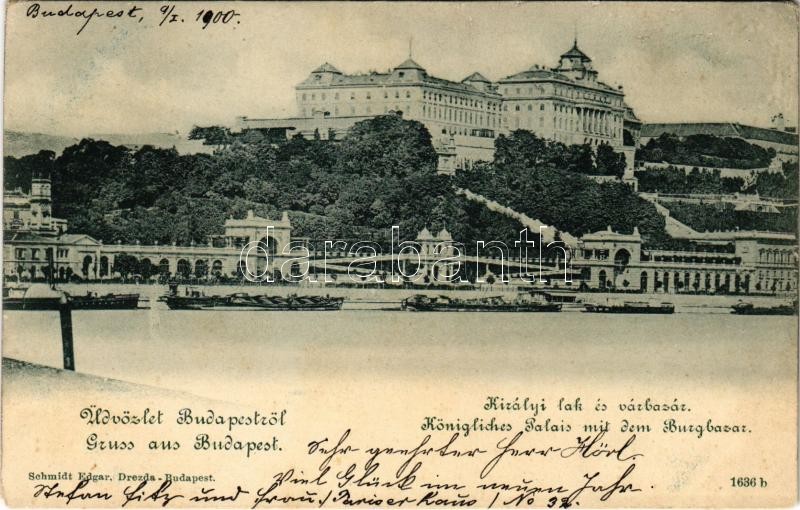 Budapest, 9/I. 1900.
darabanth
Üdvözlet Budapestről
Gruss aus Budapest.
Királyi lak és várbazár.
Königliches Palais mit dem Burgbazar.
Sehr geehrter Herr Hörl.
Viel Glück im neuen Jahr
Schmidt Edgar, Drezda-Budapest.
1636 b
Stefan Fitz und Frau